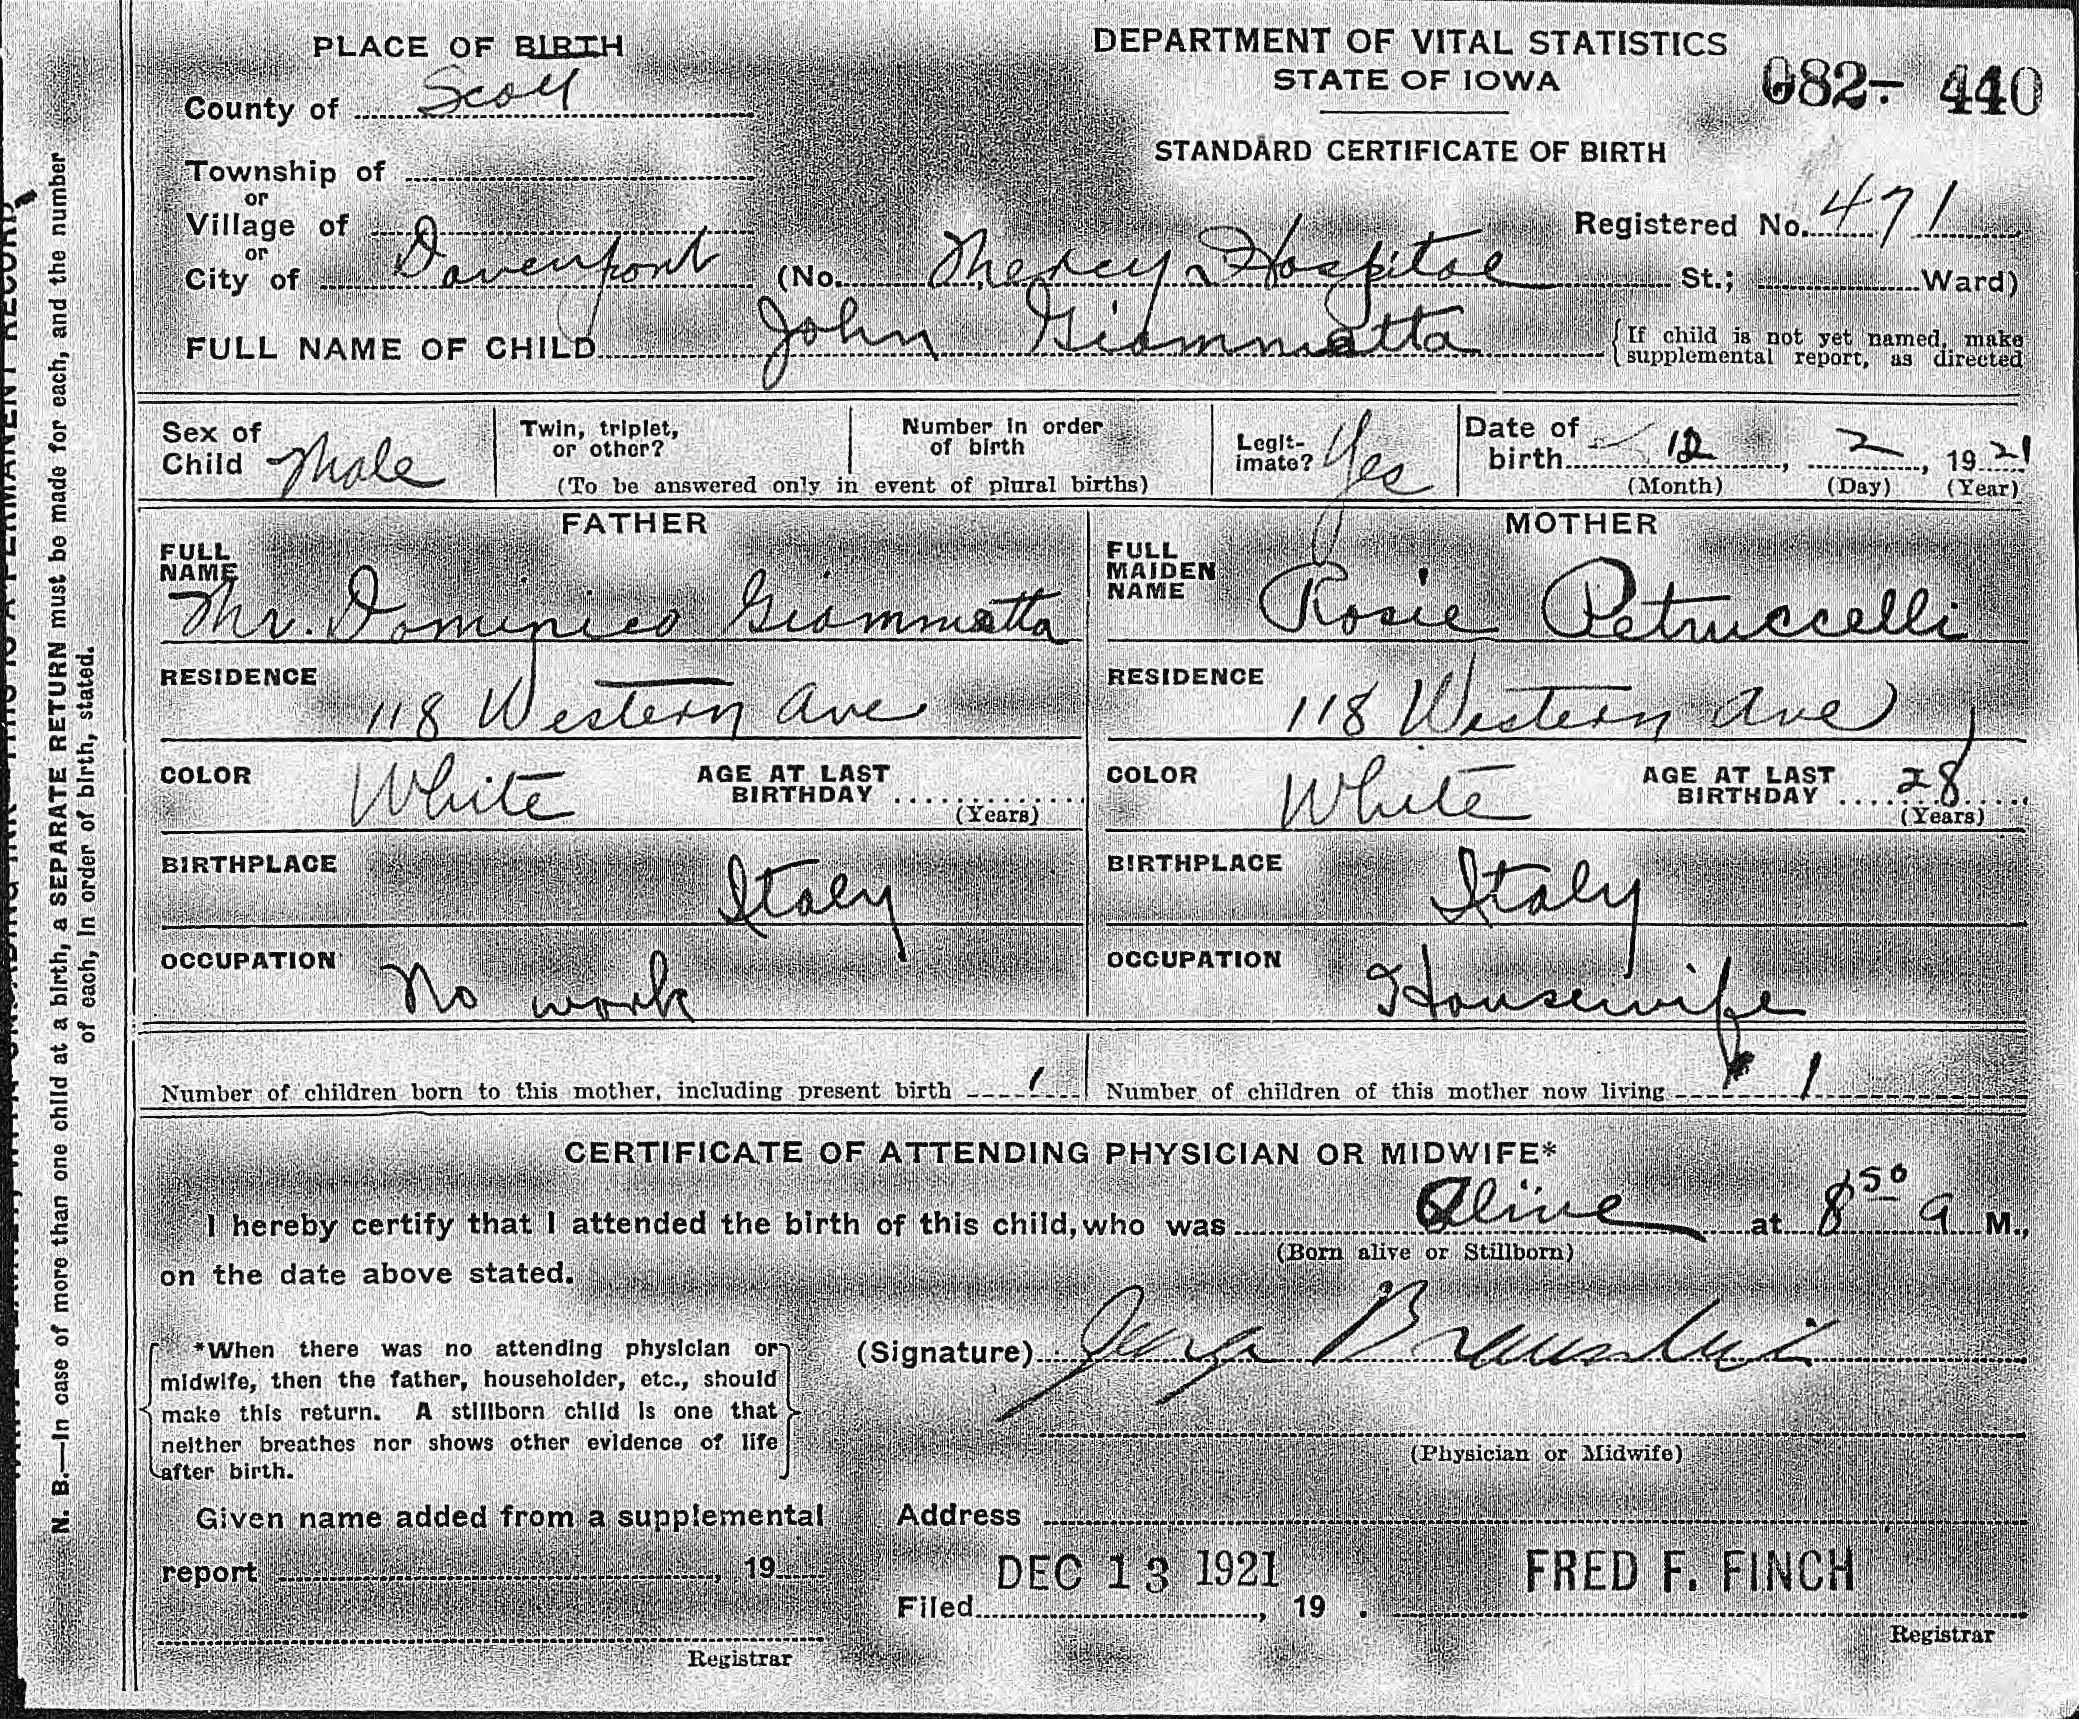 PLACE OF BIRTH
County of Scott
Township of
or
Village of
or
City of Davenport (No. Mercy Hospital St.; Ward)
DEPARTMENT OF VITAL STATISTICS
STATE OF IOWA
082- 440
STANDARD CERTIFICATE OF BIRTH
Registered No. 471
FULL NAME OF CHILD John Giammatta
If child is not yet named, make
supplemental report, as directed
Sex of
Child Male
Twin, triplet,
or other?
Number in order
of birth
(To be answered only in event of plural births)
Legit-
imate? Yes
Date of
birth 12, 2, 1921
(Month) (Day) (Year)
FATHER
FULL
NAME
Mr. Dominico Giammatta
RESIDENCE
118 Western Ave
COLOR White AGE AT LAST
BIRTHDAY
(Years)
BIRTHPLACE
Italy
OCCUPATION
No work
MOTHER
FULL
MAIDEN
NAME
Rosie Petruccelli
RESIDENCE
118 Western Ave
COLOR White AGE AT LAST
BIRTHDAY 28
(Years)
BIRTHPLACE
Italy
OCCUPATION
Housewife
Number of children born to this mother, including present birth 1
Number of children of this mother now living 1
CERTIFICATE OF ATTENDING PHYSICIAN OR MIDWIFE*
I hereby certify that I attended the birth of this child, who was Alive at 8 50 a M.,
(Born alive or Stillborn)
on the date above stated.
*When there was no attending physician or
midwife, then the father, householder, etc., should
make this return. A stillborn child is one that
neither breathes nor shows other evidence of life
after birth.
(Signature) George
(Physician or Midwife)
Given name added from a supplemental
report , 19
Registrar
Address
DEC 13 1921
Filed , 19 .
FRED F. FINCH
Registrar
N. B.—In case of more than one child at a birth, a SEPARATE RETURN must be made for each, and the number
of each, in order of birth, stated.